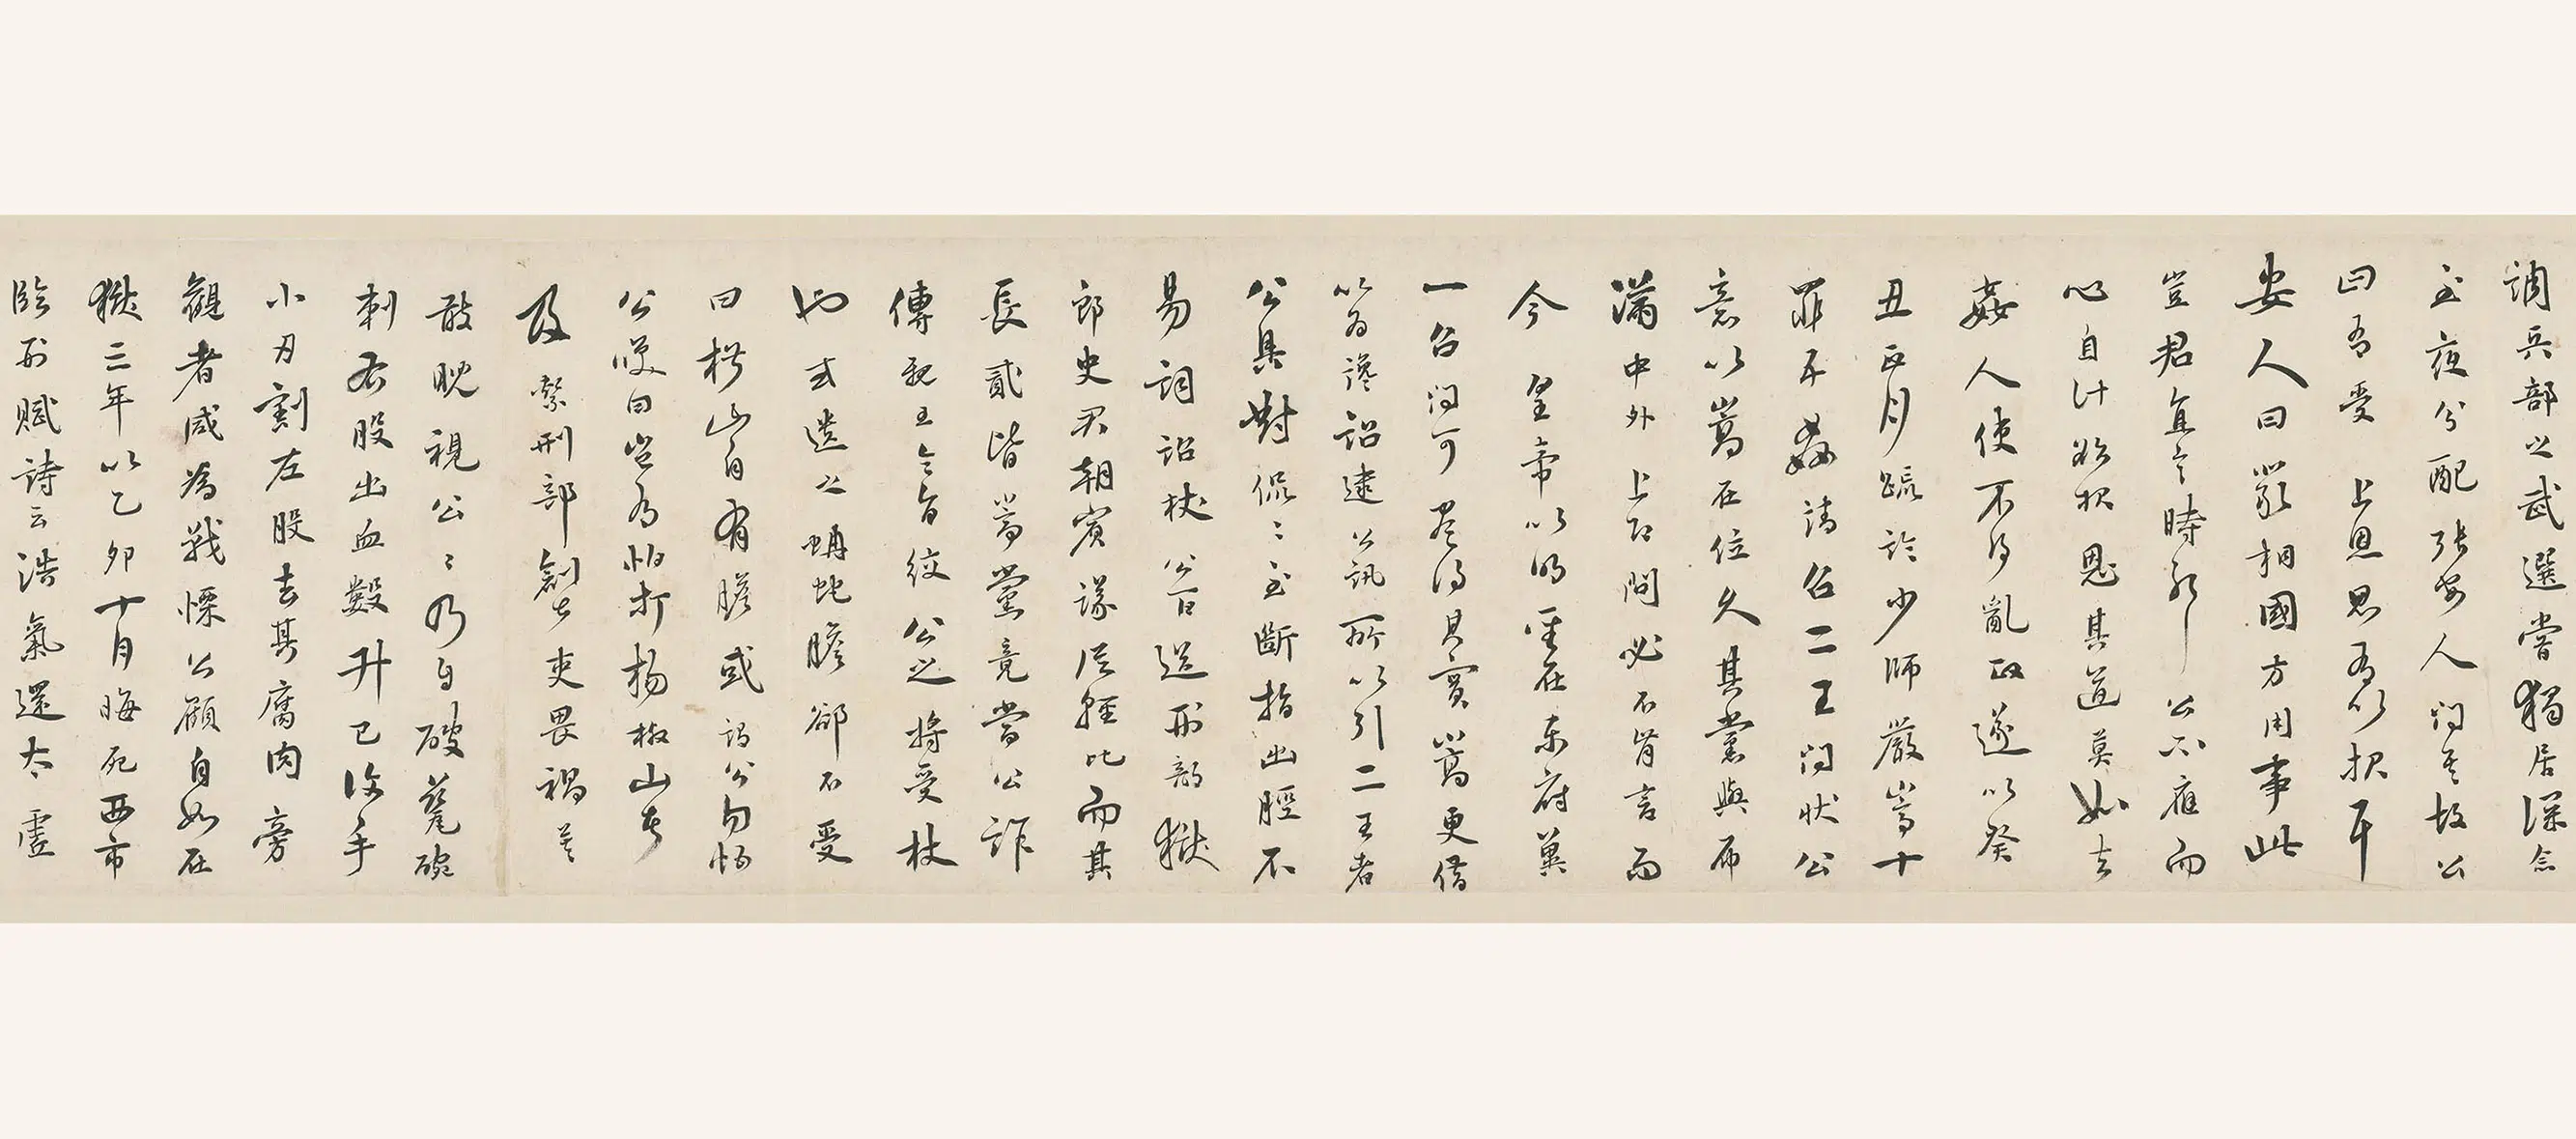 調兵部之武選嘗獨居深念
至夜分配張安人問其故公
曰吾受 上恩思有以報耳
安人曰嚴相國方用事此
豈君直言時耶 公不應而
心自计所以報恩其道莫如去
姦人使不得亂政遂以癸
丑正月疏論少師嚴嵩十
罪五姦請召二王問状公
意以嵩在位久其黨與布
满中外 上即問必不肯言而
今 皇帝以明聖在東府冀
一召問可盡得其實嵩更借
以為讒詔逮公訊所以引二王者
公具對侃〻至斷指出脛不
易詞詔杖公百送刑部獄
郎史君朝賓議從輕比而其
長貳皆嵩黨竟當公詐
傳親王令旨絞 公之將受杖
也或遺之蚺蛇膽卻不受
曰椒山自有膽或謂公勿怕
公嘆曰豈为怕打楊椒山者
及繫刑部創甚吏畏禍莫
敢睨視公〻乃自破甆碗
刺右股出血數升已後手
小刀割左股去其腐肉旁
觀者咸為戰慄公顧自如在
獄三年以乙卯十月晦死西市
臨刑賦詩云浩氣還太虛